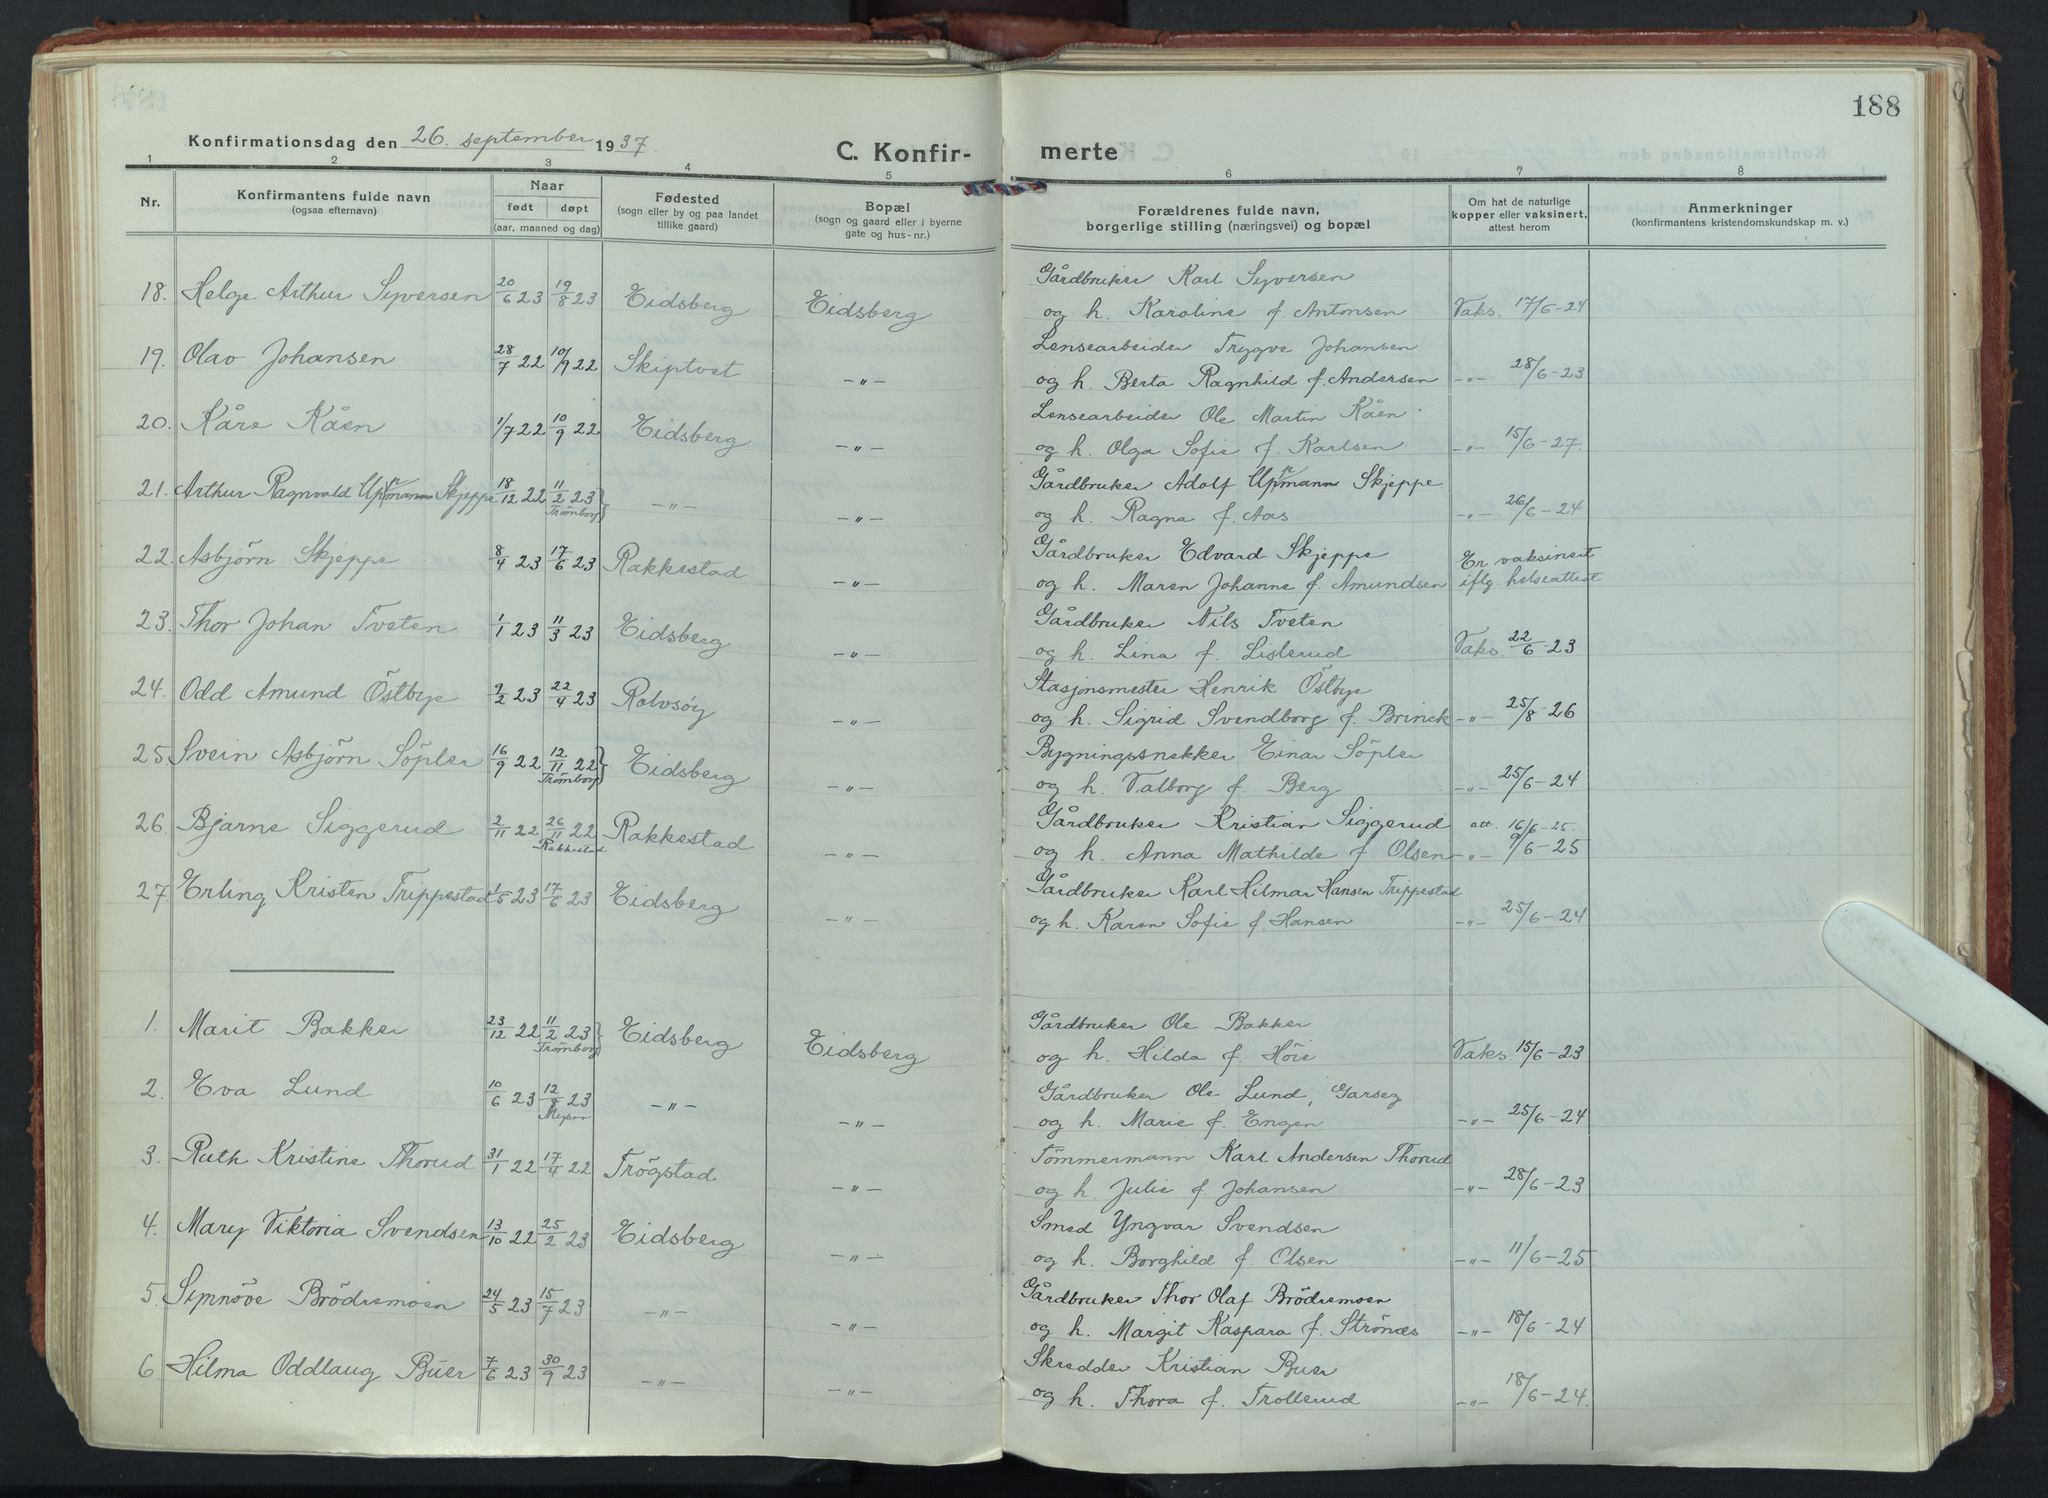 188
Konfirmationsdag den 26. september 1937.
C. Konfir- merte
1 2 3 4 5 6 7 8
Nr.
Konfirmantens fulde navn
(ogsaa efternavn)
Naar
født døpt
(aar, maaned og dag)
Fødested
(sogn eller by og paa landet
tillike gaard)
Bopæl
(sogn og gaard eller i byerne
gate og hus-nr.)
Forældrenes fulde navn,
borgerlige stilling (næringsvei) og bopæl
Om hat de naturlige
kopper eller vaksinert,
attest herom
Anmerkninger
(konfirmantens kristendomskundskap m. v.)
18. Helge Arthur Syversen 20/6 23 19/8 23 Eidsberg Eidsberg
Gårdbruker Karl Syversen
og h. Karoline f. Antonsen Vaks. 17/6-24
19. Olav Johansen 28/7 22 10/9 22 Skiptvet -"-
Lensearbeider Trygve Johansen
og h. Berta Ragnhild f. Andersen -"- 28/6-23
20. Kåre Kåen 1/7 22 10/9 22 Eidsberg -"-
Lensearbeider Ole Martin Kåen
og h. Olga Sofie f. Karlsen -"- 15/6-27.
21. Arthur Ragnvald Skjeppe 18/12 22 11/2 23 -"- -"-
Trömborg
Gårdbruker Adolf Skjeppe
og h. Ragna f. Aas -"- 26/6-24
22. Asbjörn Skjeppe 8/4 23 17/6 23 Rakkestad -"-
Gårdbruker Edvard Skjeppe
og h. Maren Johanne f. Amundsen
Er vaksinert
iflg. helseattest
23. Thor Johan Tveten 1/1 23 11/3 23 Eidsberg -"-
Gårdbruker Nils Tveten
og h. Lina f. Lislerud Vaks. 22/6-23
24. Odd Amund Östbye 9/2 23 22/4 23 Rolvsöy -"-
Stasjonsmester Henrik Östbye
og h. Sigrid Svendborg f. Brinck -"- 25/8-26
25. Svein Asbjörn Söpler 16/9 22 12/11 22 Eidsberg -"-
Trömborg
Bygningssnekker Einar Söpler
og h. Valborg f. Berg -"- 25/6-24
26. Bjarne Siggerud 2/11 22 26/11 22 Rakkestad -"-
Rakkestad
Gårdbruker Kristian Siggerud att. 16/6-25.
og h. Anna Mathilde f. Olsen -"- 9/6-25
27. Erling Kristen Trippestad 1/5 23 17/6 23 Eidsberg -"-
Gårdbruker Karl Hilmar Hansen Trippestad
og h. Karen Sofie f. Hansen -"- 25/6-24
1. Marit Bakker 23/12 22 11/2 23 Eidsberg Eidsberg
Trömborg
Gårdbruker Ole Bakker
og h. Hilda f. Höie Vaks. 15/6-23
2. Eva Lund 10/6 23 12/8 23 -"- -"-
Mysen
Gårdbruker Ole Lund, Garseg
og h. Marie f. Engen -"- 25/6-24
3. Ruth Kristine Thorud 31/1 22 17/4 22 Trögstad -"-
Tömmermann Karl Andersen Thorud
og h. Julie f. Johansen -"- 28/6-23
4. Mary Viktoria Svendsen 13/10 22 25/2 23 Eidsberg -"-
Smed Yngvar Svendsen
og h. Borghild f. Olsen -"- 11/6-25
5. Synnöve Brödremoen 24/5 23 15/7 23 -"- -"-
Gårdbruker Thor Olaf Brödremoen
og h. Margit Kaspara f. Strönæs -"- 18/6-24
6. Hilma Oddlaug Buer 7/6 23 30/9 23 -"- -"-
Skredder Kristian Buer
og h. Thora f. Trollerud -"- 18/6-24.